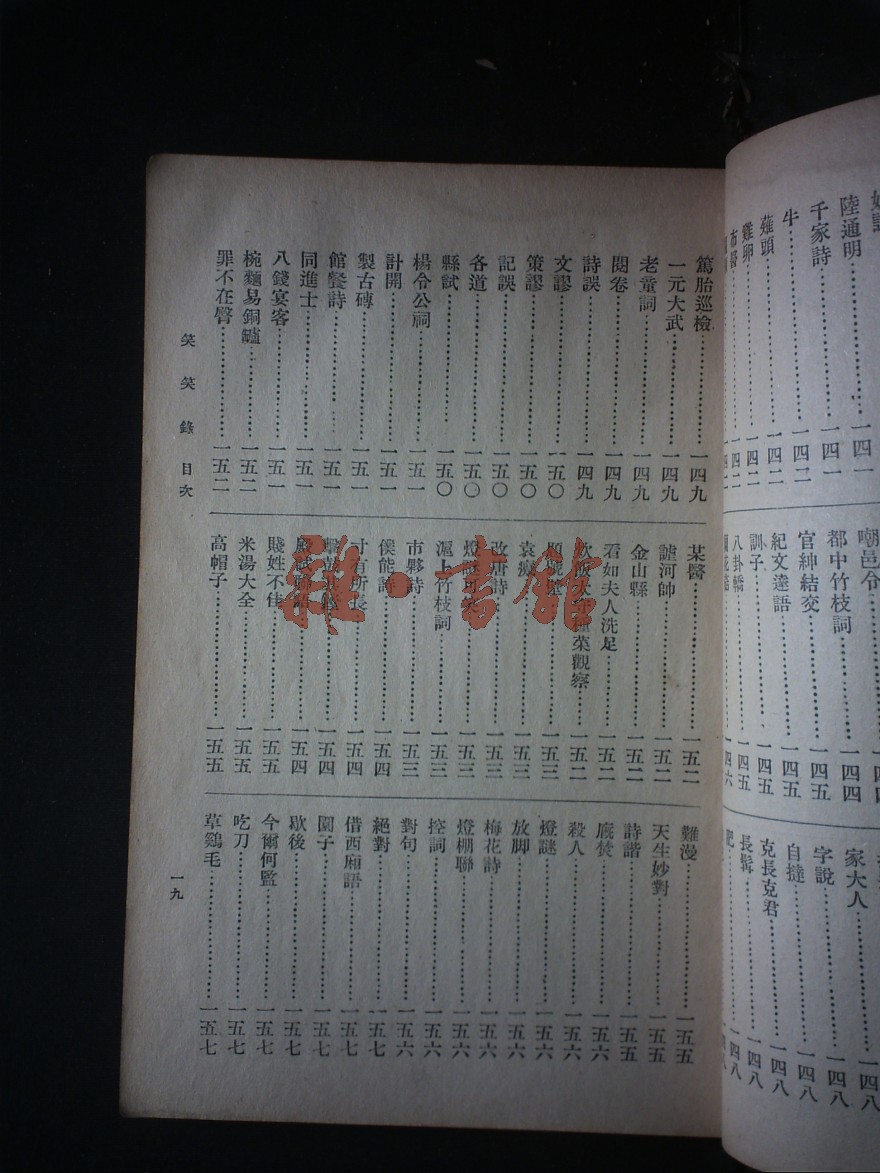 陸通明……一四一
千家詩……一四一
牛……一四二
薤頭……一四二
雞卵……一四二
嘲邑令
都中竹枝詞……一四四
官紳結交……一四五
紀文達語……一四五
訓子……一四五
八卦轎……一四五
家大人……一四八
字說……一四八
自撻……一四八
克長克君……一四八
長髯……一四八
篤胎巡檢……一四九
一元大武……一四九
老童詞……一四九
閱卷……一四九
詩誤……一四九
文謬……一五〇
策謬……一五〇
記誤……一五〇
各道……一五〇
縣試……一五〇
楊令公祠……一五一
計開……一五一
製古磚……一五一
館餐詩……一五一
同進士……一五一
八錢宴客……一五一
椀麵易銅鑪……一五二
罪不在臀……一五二
某醫……一五二
謔河帥……一五二
金山縣……一五二
看如夫人洗足……一五二
菜觀察……一五二
一五三
袁癡……一五三
改唐詩……一五三
燈謎……一五三
滬上竹枝詞……一五三
市夥詩……一五三
僕能詩……一五四
寸有所長……一五四
一五四
一五四
賤姓不佳……一五五
米湯大全……一五五
高帽子……一五五
難漫……一五五
天生妙對……一五五
詩譜……一五五
底焚……一五六
殺人……一五六
燈謎……一五六
放脚……一五六
梅花詩……一五六
燈棚聯……一五六
控詞……一五六
對句……一五六
絕對……一五七
借西廂語……一五七
圓子……一五七
歇後……一五七
今爾何監……一五七
吃刀……一五七
草鷄毛……一五七
笑笑錄 目次
一九
雜·書館